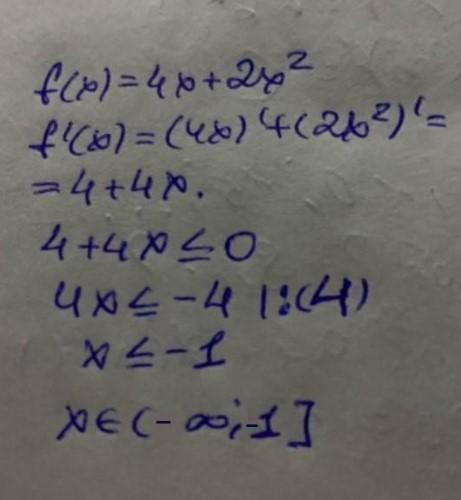 f(x)=4x+2x²
f'(x)=(4x)'+(2x²)'=
=4+4x.
4+4x≤0
4x≤-4 |:(4)
x≤-1
x∈(-∞;-1]